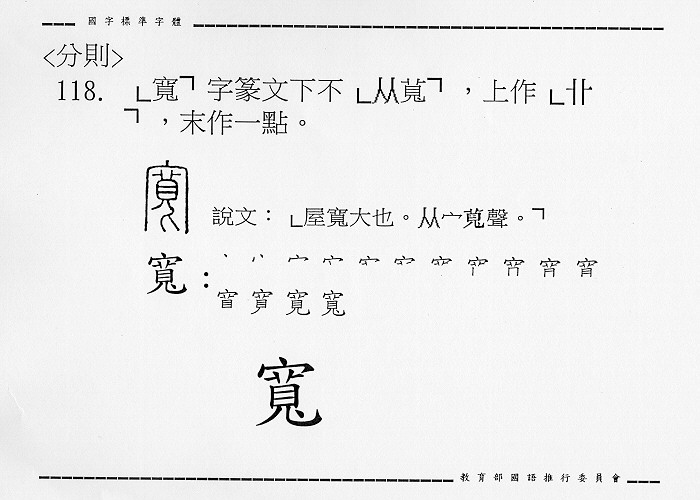 國字標準字體
<分則>
118. ㄴ寬ㄱ 字篆文下不ㄴ从莧ㄱ，上作ㄴ卝
ㄱ，末作一點。
說文：ㄴ屋寬大也。从宀萈聲。ㄱ
寬：
寬
寬
教育部國語推行委員會